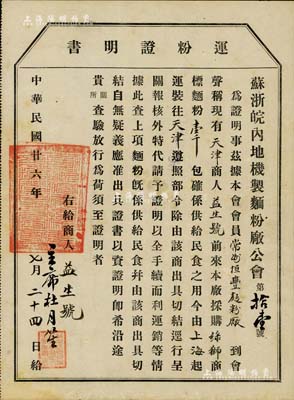 運粉證明書
蘇浙皖內地機製麵粉廠公會 第拾壹號
為證明事茲據本會會員常州恆豐麵粉廠到會
聲稱現有天津商人益生號前來本廠採購綠獅商
標麵粉壹千包確係供給民食之用今由上海起
運裝往天津遵照部令除由該商出具切結逕行呈
關報核外特代請予證明以全手續而利運銷等情
據此查上項麵粉旣係供給民食幷由該商出具切
結自無疑義應准出具證書以資證明卽希沿途
貴關所查驗放行為荷須至證明者
右給商人益生號
主席杜月笙
中華民國廿六年七月二十四日給